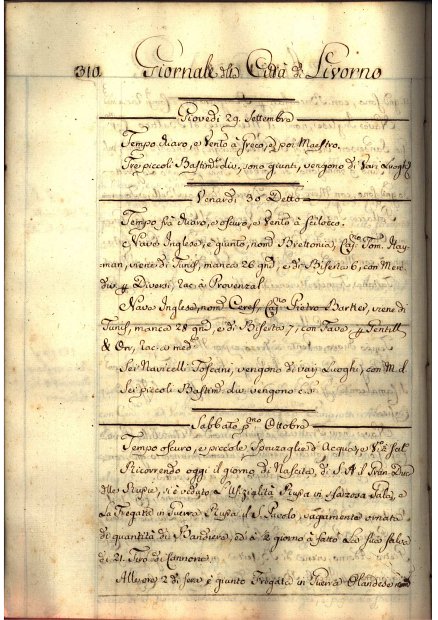 310 Giornale della Città di Livorno
Giovedi 29. Settembre
Tempo chiaro, e Vento à Greco, e poi Maestro.
Tre piccoli Bastimti div. sono giunti, vengono di Vari Luoghi
Venerdi 30 Detto
Tempo frà chiaro, e oscuro, e Vento à Scilocco.
Nave Inglese, è giunto, nomta Brettonia, Capno Tom. Hay-
man, viene di Tunis, manca 26 gni, e di Biserta 6, con Mer-
die p Diversi, Rac. à Provenzal
Nave Inglese, nomta Ceres, Capno Pietro Bartler, viene di
Tunis, manca 28 gni e di Biserta 7, con Fava, p Fentill
& Orr, Rac. a medmi
Sei Navicelli Toscani, vengono di vari Luoghi, con M. d.
Sei piccoli Bastimti div. vengono c. s.
Sabbato pmo Ottobre
Tempo oscuro, e piccole Spruzaglie d'Acqua, e
Ricorrendo oggi il giorno di Nascita, di S. A. I. Gran Duca
delle Russie, si è veduto L'Uffizialità Russa in sfarzosa Gala, e
La Fregata in Guerra Russa il S. Pavolo, vagamente ornata
di quantità di Bandiere, ed à ½ giorno à fatto La sua Salva
di 21. Tiro di Cannone
Alle ore 2 di sera è giunto Fregata in Guerra Olandese